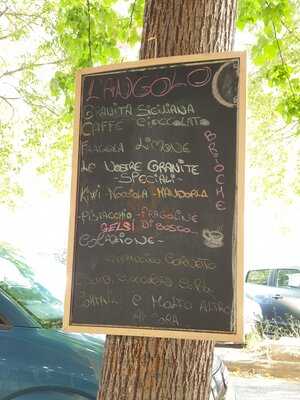 L'ANGOLO
GRANITÀ SICILIANA
CAFFE CIOCCOLATO
FRAGOLA LIMONE
BRIOCHE
LE NOSTRE GRANITE
- SPECIALI -
KIWI - NOCCIOLA - MANDORLA
- PISTACCHIO - FRAGOLINE
GELSI DI BOSCO...
COLAZIONE -
CORNETO
E MOLTO ALTRO